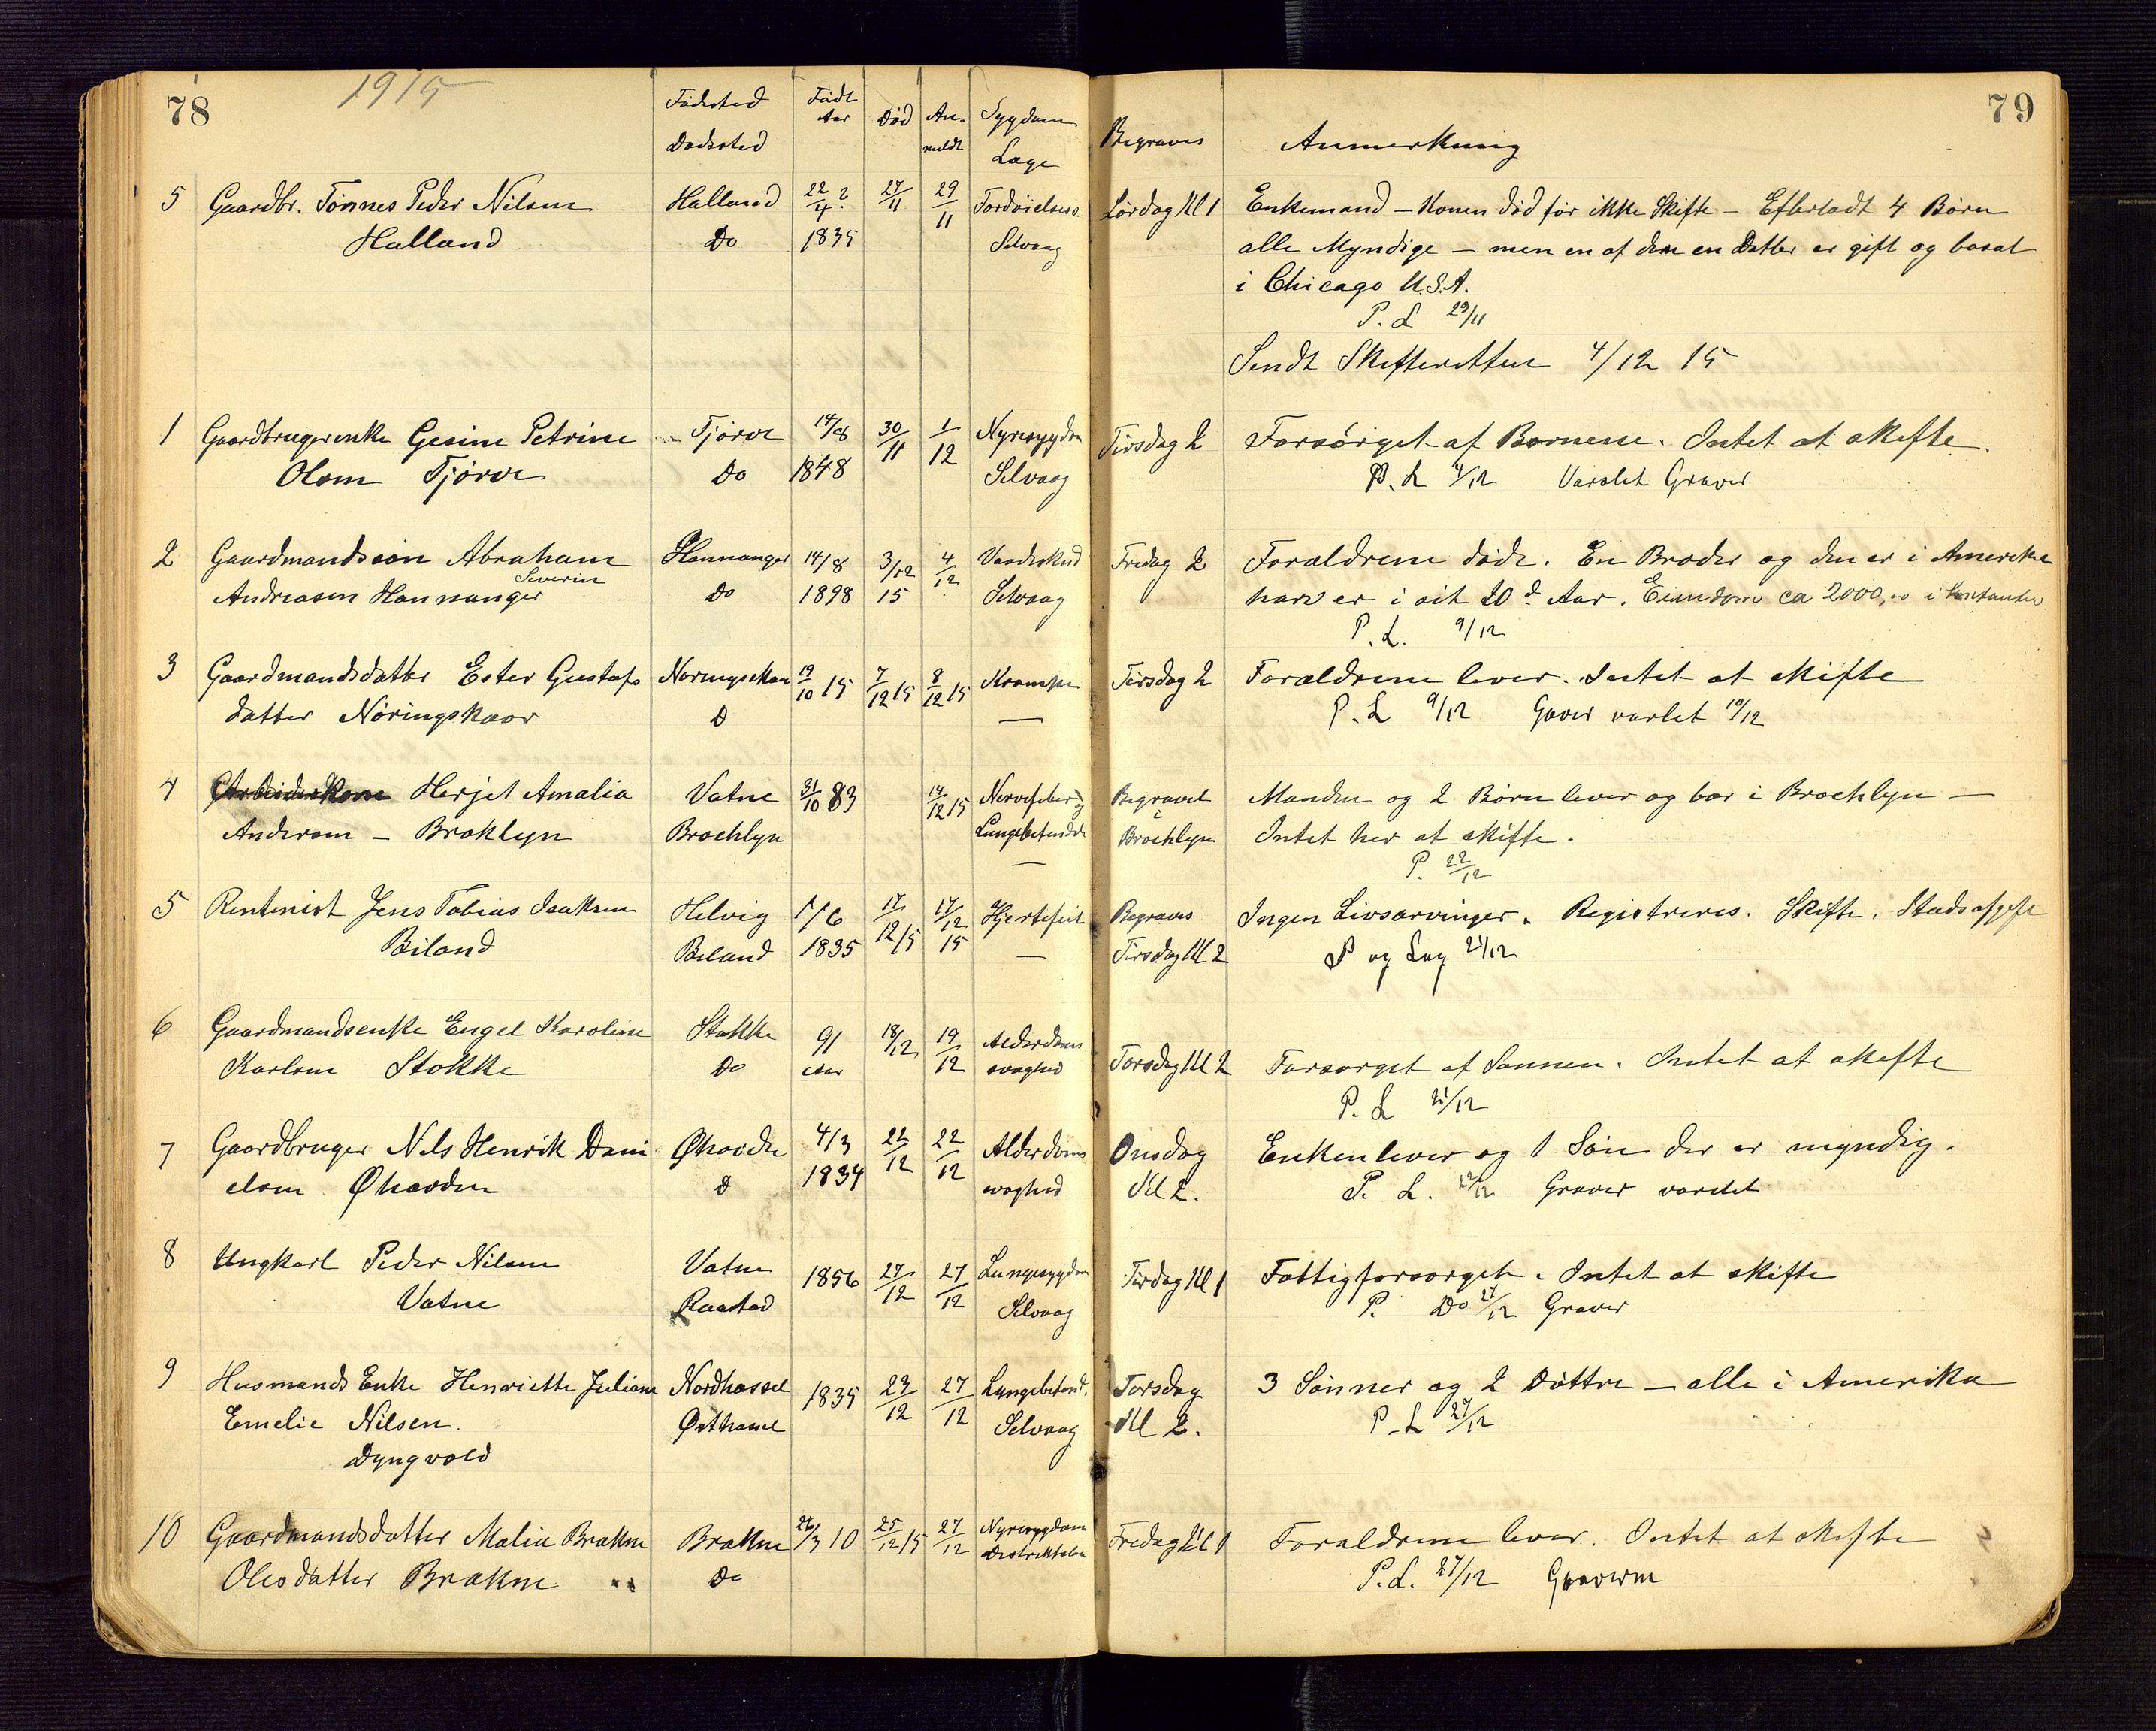 78 1915 79
Fødested Født Død An- Sygdom Begraves Anmerkning
Dødssted Aar meldt Læge
5 Gaardbr. Tønnes Peder Nilsen Halland 22/4? 27/11 29/11 Fordøielsess. Lørdag Kl 1 Enkemand – Konen död før ikke Skifte – Efterladt 4 Børn
Halland Do 1835 Selvaag alle Myndige – men en af dem en Datter er gift og bosat
i Chicago U.S.A.
P. L 29/11
Sendt Skifteretten 4/12 15
1 Gaardbrugerenke Gesine Petrine Tjørve 14/8 30/11 1/12 Nyresygdom Tirsdag 2 Forsørget af Børnene. Intet at skifte.
Olsen Tjørve Do 1848 Selvaag P. L 4/12 Varslet Graver
2 Gaardmandssøn Abraham Hannanger 14/8 3/12 4/12 Vaadeskud Fredag 2 Forældrene døde. En Broder og den er i Amerika
Severin
Andreasen Hannanger Do 1898 15 Selvaag han er i sit 20d Aar. Eiendom ca 2000,00 i Kontanter
P. L. 9/12
3 Gaardmandsdatter Ester Gustafs Nøringskaar 19/10 15 7/12 15 8/12 15 Krampe Tirsdag 2 Forældrene lever. Intet at skifte
datter Nöringskaar D — P. L 9/12 Graver varslet 10/12
4 Arbeiderkone Herjet Amalia Vatne 31/10 83 14/12 15 Nervefeber og Begravet Manden og 2 Børn lever og bor i Brochlyn —
Andersen – Broklyn Brochlyn Lungebetændelse i Brochlyn Intet her at skifte.
— P. 22/12
5 Rentenist Jens Tobias Isaksen Helvig 1/6 17/12 15 17/12 Hjertefeil Begraves Ingen Livsarvinger. Registreres. Skifte. Stadsafgift
Biland Beland 1835 15 — Tirsdag Kl 2 P og Lag 21/12
6 Gaardmandsenke Engel Karoline Stokke 91 18/12 19/12 Alderdoms Torsdag Kl 2 Forsørget af Sønnen. Intet at skifte
Karlsen Stokke Do Aar svaghed P. L 21/12
7 Gaardbruger Nils Henrik Dani Øhavde 4/3 22/12 22/12 Alderdoms Onsdag Enken lever og 1 Søn der er myndig.
elsen Øhavden D 1834 svaghed Kl 2. P. L. 22/12 Graver varslet
8 Ungkarl Peder Nilsen Vatne 1856 27/12 27/12 Lungesygdom Tirdag Kl 1 Fattigforsørget. Intet at skifte
Vatne Raastad Selvaag P. Do 27/12 Graver
9 Husmands Enke Henriette Juliane Nordhassel 1835 23/12 27/12 Lungebetænd. Torsdag 3 Sønner og 2 Døttre – alle i Amerika
Emelie Nilsen. Østhassel Selvaag Kl 2. P. L 27/12
Dyngvold
10 Gaardmandsdatter Malia Brakne Brakne 26/3 10 25/12 15 27/12 Nyresygdom Fredag Kl 1 Forældrene lever. Intet at skifte
Olesdatter Brakne Do Distriktslæ P. L. 27/12 Graveren